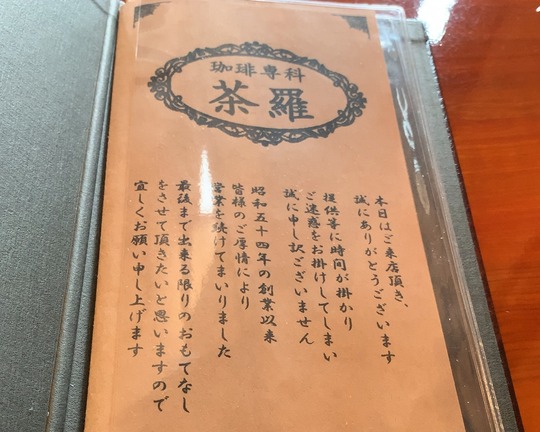 珈琲専科
茶羅
本日はご来店頂き、
誠にありがとうございます
提供等に時間が掛かり
ご迷惑をお掛けしてしまい
誠に申し訳ございません
昭和五十四年の創業以来
皆様のご厚情により
営業を続けてまいりました
最後まで出来る限りのおもてなし
をさせて頂きたいと思いますので
宜しくお願い申し上げます